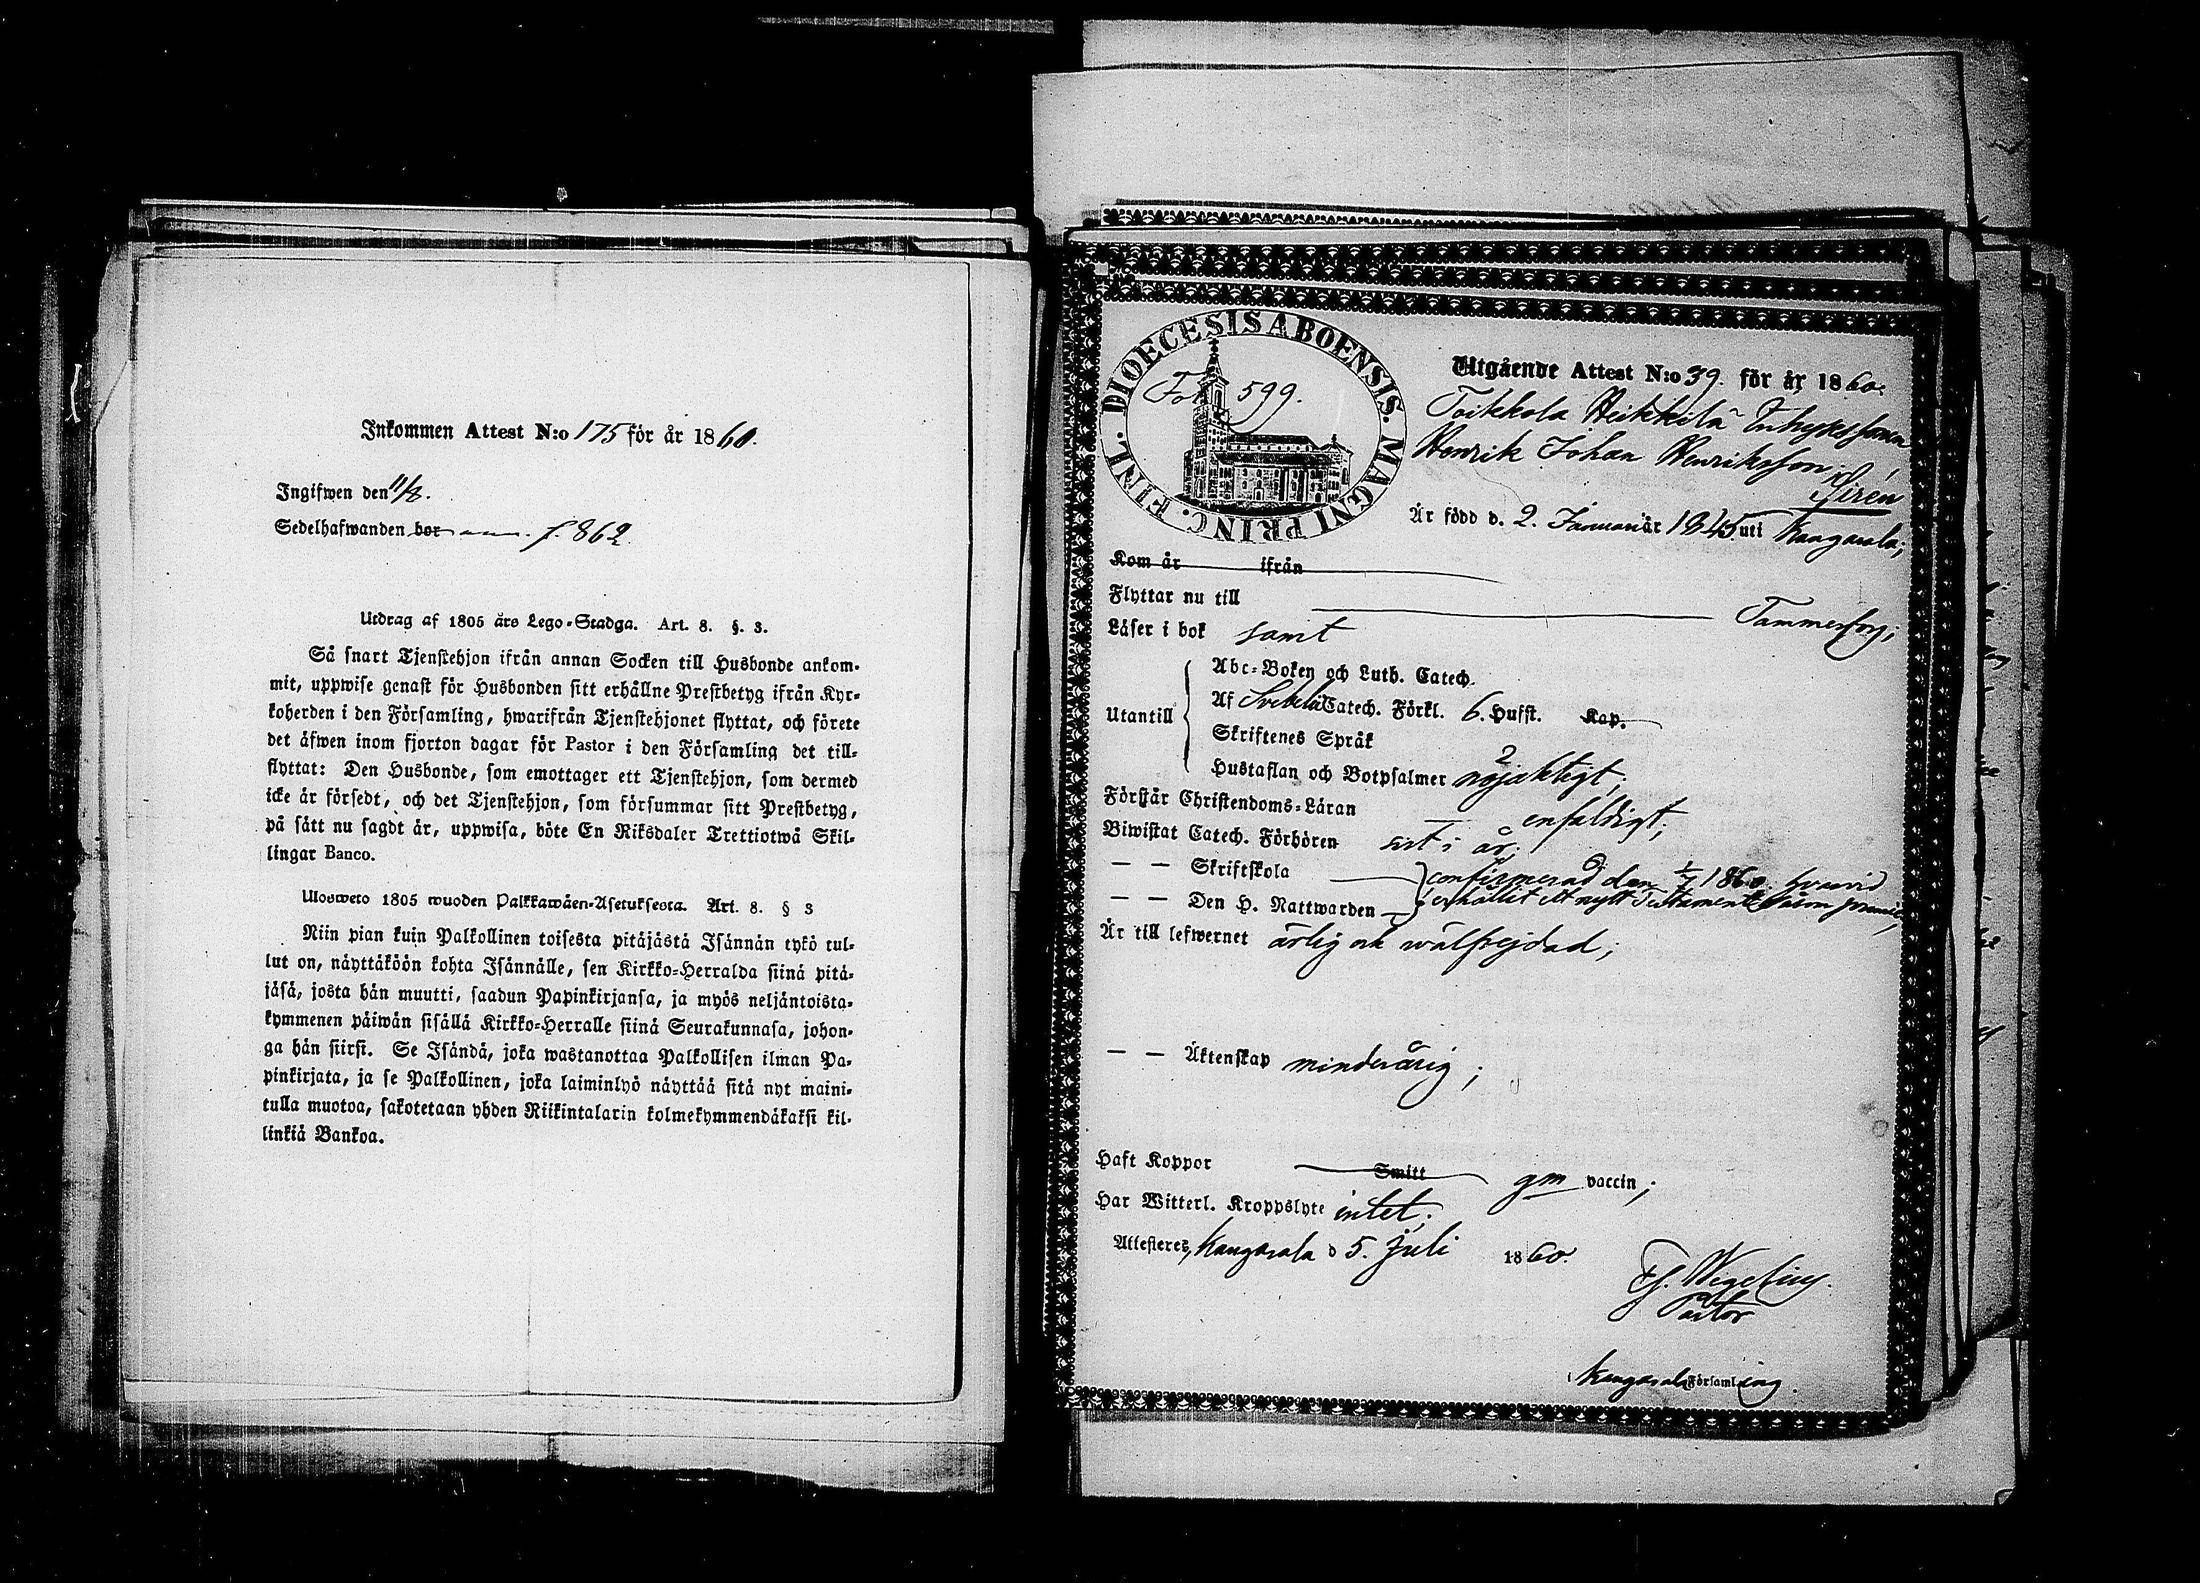 Inkommen Attest N:o 175 för år 1860.
Ingifwen den 11/8.
Sedelhafwanden bor f. 862
Utdrag af 1805 års Lego-Stadga. Art. 8. §. 3.
Så snart Tjenstehjon ifrån annan Socken till Husbonde ankom-
mit, uppwise genast för Husbonden sitt erhållne Prestbetyg ifrån Kyr-
koherden i den Församling, hwarifrån Tjenstehjonet flyttat, och förete
det äfwen inom fjorton dagar för Pastor i den Församling det till-
flyttat: Den Husbonde, som emottager ett Tjenstehjon, som dermed
icke är försedt, och det Tjenstehjon, som försummar sitt Prestbetyg,
på sätt nu sagdt är, uppwisa, böte En Riksdaler Trettiotwå Skil-
lingar Banco.
Ulosweto 1805 wuoden Palkkawäen-Asetuksesta. Art. 8. § 3
Niin pian kuin Palkollinen toisesta pitäjästä Isännän tykö tul-
lut on, näyttäköön kohta Isännälle, sen Kirkko-Herralda siinä pitä-
jäsä, josta hän muutti, saadun Papinkirjansa, ja myös neljäntoista-
kymmenen päiwän sisällä Kirkko-Herralle siinä Seurakunnasa, johon-
ga hän siirsi. Se Isändä, joka wastanottaa Palkollisen ilman Pa-
pinkirjata, ja se Palkollinen, joka laiminlyö näyttää sitä nyt maini-
tulla muotoa, sakotetaan yhden Riikintalarin kolmekymmendäkaksi kil-
linkiä Bankoa.
DIOECESIS ABOENSIS. MAGNI PRINC. FINL.
Fol. 599.
Utgående Attest N:o 39. för år 1860.
Toikkola Heikkilä Inhysessonen
Henrik Johan Henriksson
Sirén
Är född d. 2. Januari år 1845 uti Kangasala;
Kom år ifrån
Flyttar nu till Tammerfors;
Läser i bok samt
Utantill
Abc-Boken och Luth. Catech.
Af Svebelii Catech. Förkl. 6. Hufst. Kap.
Skriftenes Språk
Hustaflan och Botpsalmer nöjaktigt;
Förstår Christendoms-Läran enfaldigt;
Biwistat Catech. Förhören sist i år.
— — Skriftskola confirmerad den 1/7 1860. hvarvid
— — Den H. Nattwarden erhållit ett nytt Testamente såsom premie;
Är till lefwernet ärlig och wälfrejdad;
— — Äktenskap minderårig;
Haft Koppor Smitt gm vaccin;
Har Witterl. Kroppslyte intet;
Attesteres, Kangasala d 5. Juli 1860.
Wegelius.
Pastor
i Kangasala Församling.